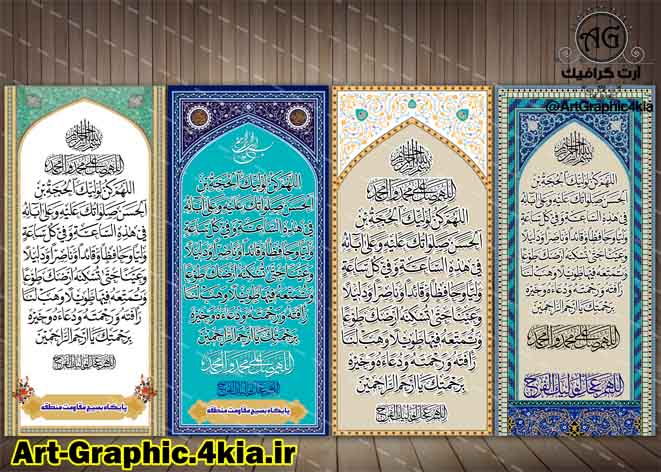 AG
آرت گرافیک
@ArtGraphic.4kia
اللهم صل علی محمد و آل محمد
اَللّهُمَّ کُنْ لِوَلِیِّکَ الْحُجَّةِ بْنِ
الْحَسَنِ صَلَواتُکَ عَلَیْهِ وَعَلی آبائِهِ
فی هذِهِ السّاعَةِ وَفی کُلِّ ساعَةٍ
وَلِیّاً وَحافِظاً وَقائِداً وَناصِراً وَدَلیلاً
وَعَیْناً حَتّی تُسْکِنَهُ اَرْضَکَ طَوْعاً
وَتُمَتِّعَهُ فیها طَویلاً وَهَبْ لَنا
رَأْفَتَهُ وَرَحْمَتَهُ وَدُعاءَهُ وَخَیْرَهُ
بِرَحْمَتِکَ یا اَرْحَمَ الرّاحِمینَ
اللهم عجل لولیک الفرج
پایگاه بسیج مقاومت منطقه
اَللّهُمَّ کُنْ لِوَلِیِّکَ الْحُجَّةِ بْنِ
الْحَسَنِ صَلَواتُکَ عَلَیْهِ وَعَلی آبائِهِ
فی هذِهِ السّاعَةِ وَفی کُلِّ ساعَةٍ
وَلِیّاً وَحافِظاً وَقائِداً وَناصِراً وَدَلیلاً
وَعَیْناً حَتّی تُسْکِنَهُ اَرْضَکَ طَوْعاً
وَتُمَتِّعَهُ فیها طَویلاً وَهَبْ لَنا
رَأْفَتَهُ وَرَحْمَتَهُ وَدُعاءَهُ وَخَیْرَهُ
بِرَحْمَتِکَ یا اَرْحَمَ الرّاحِمینَ
اللهم صل علی محمد و آل محمد
اللهم عجل لولیک الفرج
پایگاه بسیج مقاومت منطقه
بسم الله الرحمن الرحیم
اللهم صل علی محمد و آل محمد
اَللّهُمَّ کُنْ لِوَلِیِّکَ الْحُجَّةِ بْنِ
الْحَسَنِ صَلَواتُکَ عَلَیْهِ وَعَلی آبائِهِ
فی هذِهِ السّاعَةِ وَفی کُلِّ ساعَةٍ
وَلِیّاً وَحافِظاً وَقائِداً وَناصِراً وَدَلیلاً
وَعَیْناً حَتّی تُسْکِنَهُ اَرْضَکَ طَوْعاً
وَتُمَتِّعَهُ فیها طَویلاً وَهَبْ لَنا
رَأْفَتَهُ وَرَحْمَتَهُ وَدُعاءَهُ وَخَیْرَهُ
بِرَحْمَتِکَ یا اَرْحَمَ الرّاحِمینَ
اللهم عجل لولیک الفرج
بسم الله الرحمن الرحیم
اَللّهُمَّ کُنْ لِوَلِیِّکَ الْحُجَّةِ بْنِ
الْحَسَنِ صَلَواتُکَ عَلَیْهِ وَعَلی آبائِهِ
فی هذِهِ السّاعَةِ وَفی کُلِّ ساعَةٍ
وَلِیّاً وَحافِظاً وَقائِداً وَناصِراً وَدَلیلاً
وَعَیْناً حَتّی تُسْکِنَهُ اَرْضَکَ طَوْعاً
وَتُمَتِّعَهُ فیها طَویلاً وَهَبْ لَنا
رَأْفَتَهُ وَرَحْمَتَهُ وَدُعاءَهُ وَخَیْرَهُ
بِرَحْمَتِکَ یا اَرْحَمَ الرّاحِمینَ
اللهم صل علی محمد و آل محمد
اللهم عجل لولیک الفرج
Art-Graphic.4kia.ir